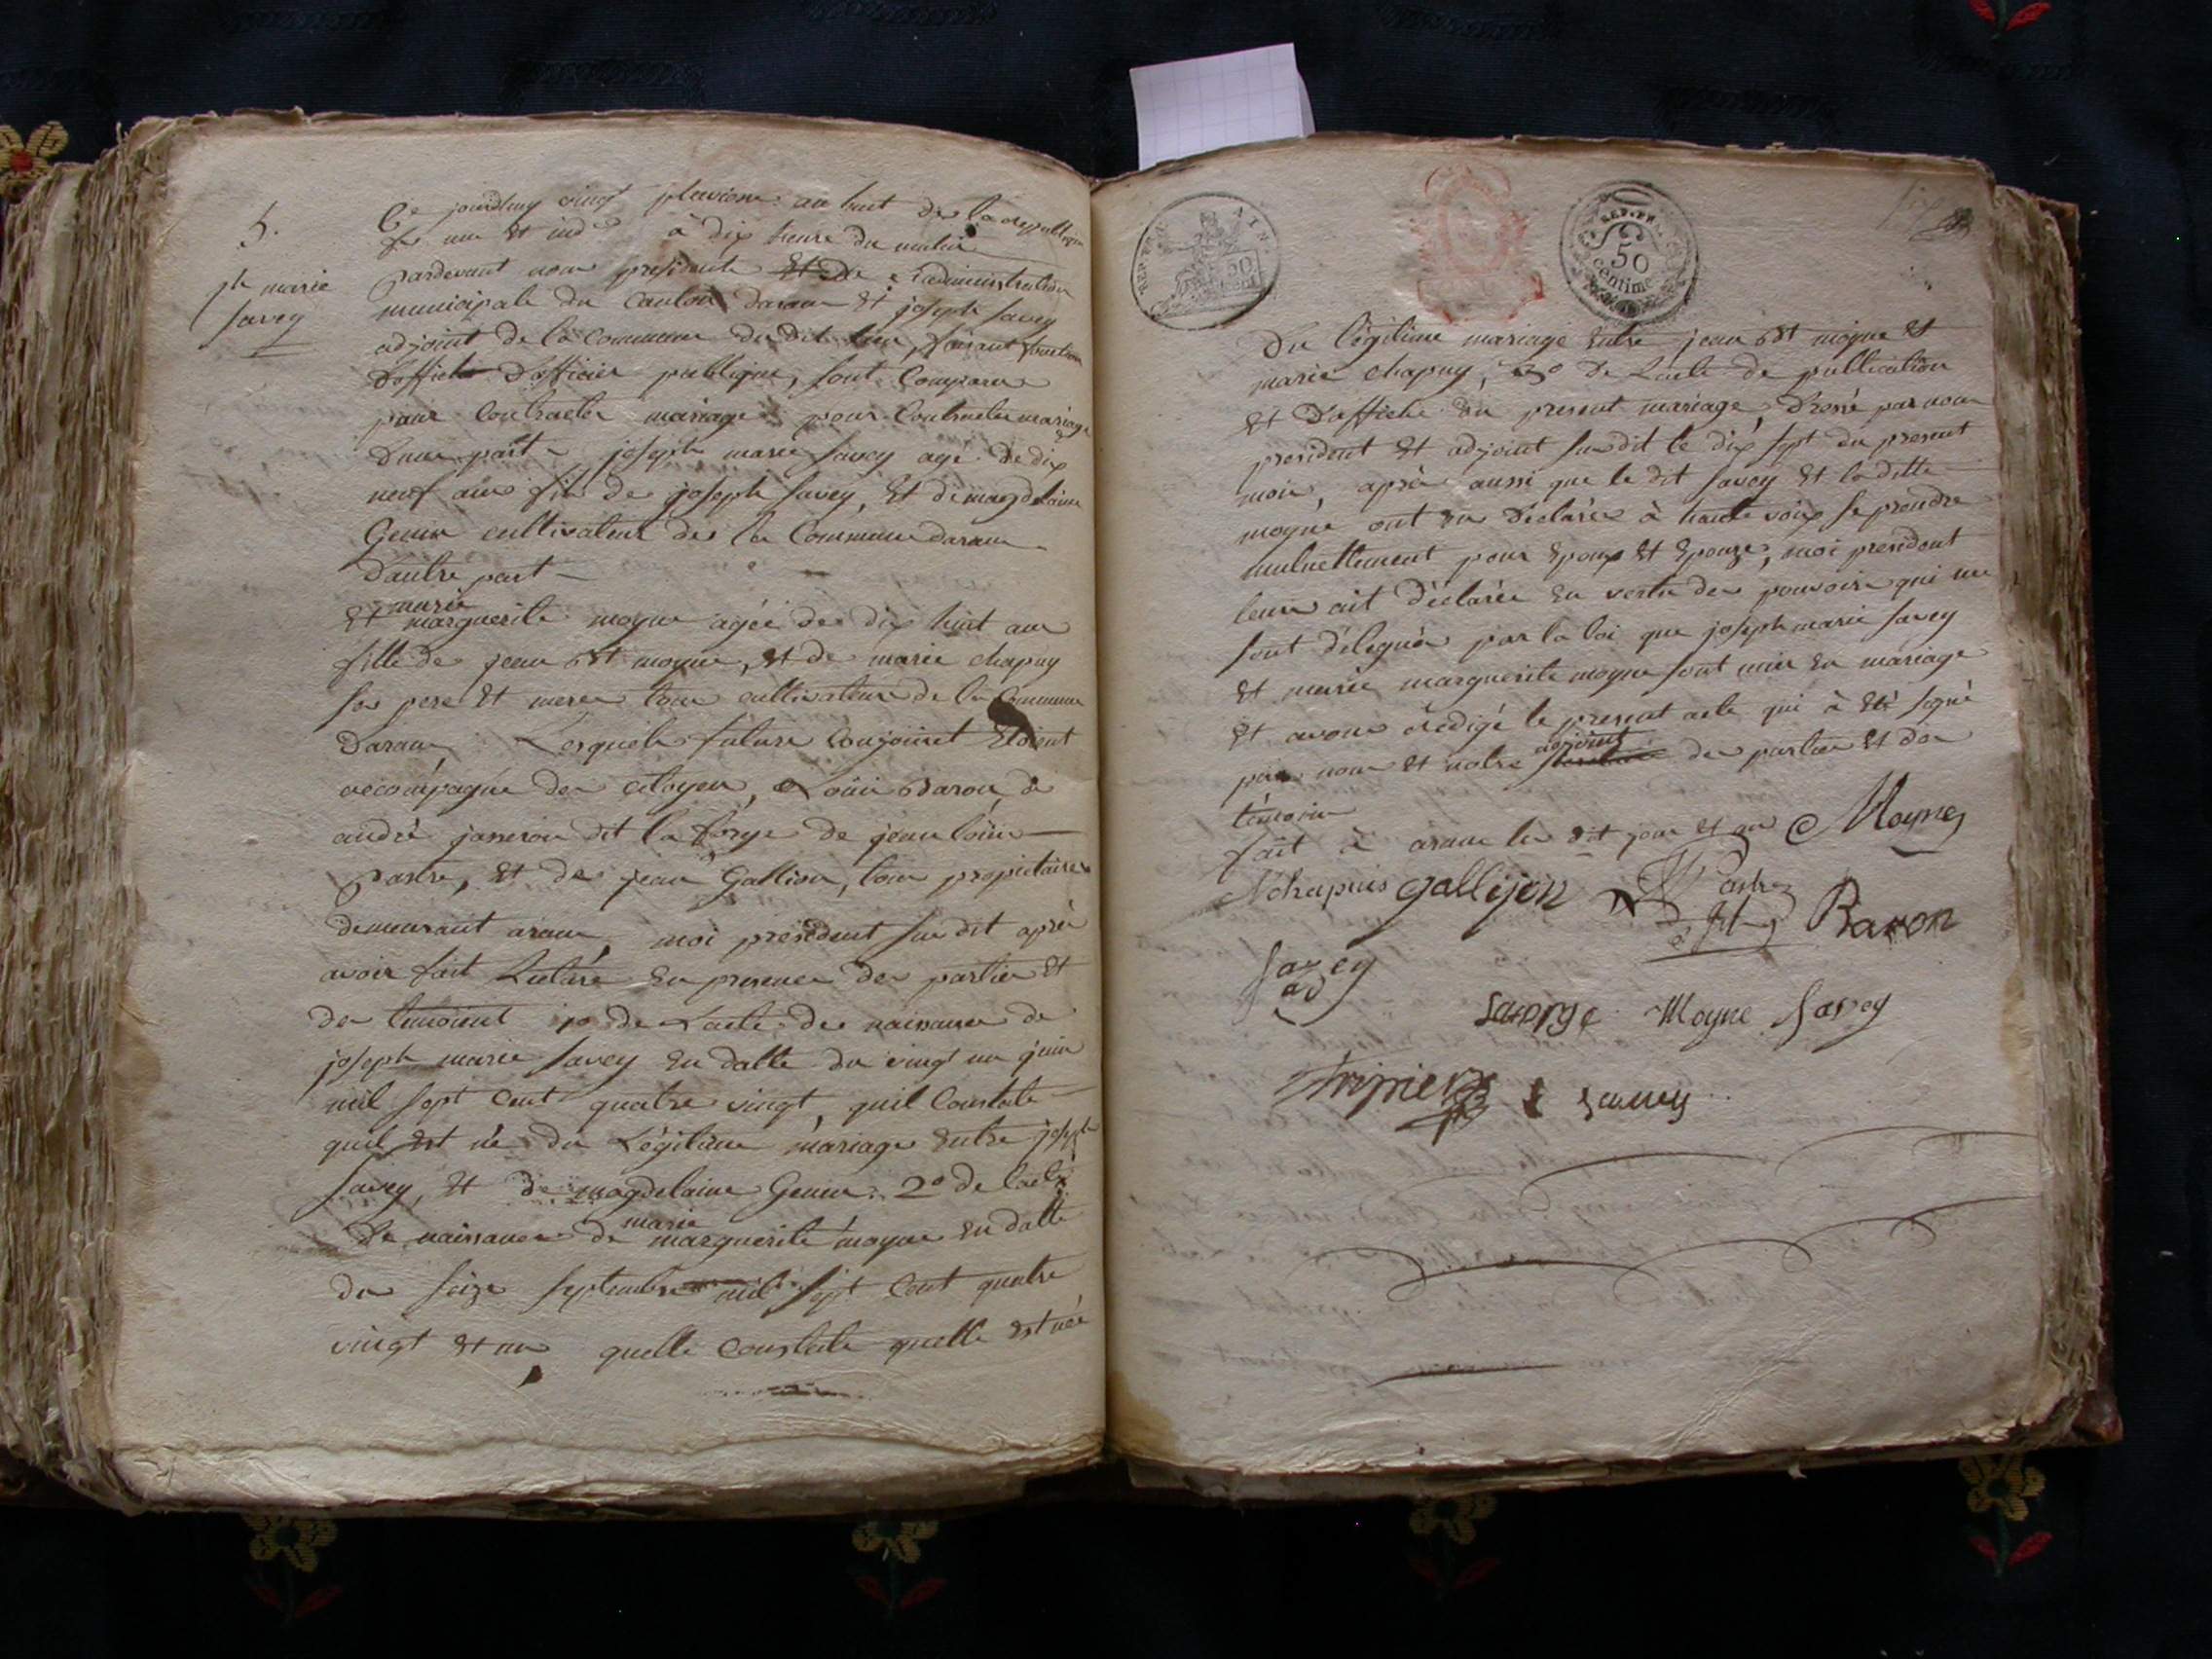 5.
jh marie
Savey
Ce jourdhuy vingt pluviose an huit de la republique
fse une et indble à dix heure du matin
pardevant nous president Et De Ladministration
municipale du Canton daranc Et joseph Savey
adjoint de la Commune du dit lieu, faisant fonction
Doffiche Dofficier publique, sont Comparus
pour Contracter mariage pour Contracter mariage
Dune part joseph marie Savey agé de dix
neuf ans fils de joseph Savey, Et de magdelaine
Genin cultivateur de la Commune daranc
Dautre part
marie
Et marguerite moyne agée de dix huit ans
fille de jean Bt moyne, et de marie chapuy
ses pere Et mere tous cultivateurs de la Commune
Daranc Lesquels futurs Conjoinct Etoient
accompagné des citoyens, Loüis Baron, de
andré jasseron dit la forge de jean loüis
pastre, Et de jean Gallion, tous propietaires
demeurant aranc, moi president sus dit après
avoir fait Lecture En presence des parties Et
des temoints 1o de Lacte de naissance de
joseph marie Savey En datte du vingt un juin
mil sept Cent quatre vingt, quil Constate
quil Est né du Légitime mariage Entre joseph
Savey, Et de magdelaine Genin. 2o de lacte
marie
De naissance de marguerite moyne En datte
du seize septembre mil sept Cent quatre
vingt Et un quelle Constate quelle Est née
REP. FRA. AIN.
50 CENT.
REP. FRA.
50
centime
Du légitime mariage Entre jean Bt moyne Et
marie chapuy, 3o De Lacte de publication
Et Daffiche du present mariage, Dressé par nous
president Et adjoint sus dit le dix sept du present
mois, après aussi que le dit Savey Et la ditte
moyne ont Eu Déclarés à haute voix se prendre
mutuellement pour Epoux Et Epouze, moi president
leurs ait déclarée En vertu des pouvoirs qui me
sont délegués par la loi que joseph marie Savey
Et marie marguerite moyne sont unis En mariage
Et avons rédigé le present acte qui à Eté signé
adjoint
par nous et notre des parties Et des
témoins
fait à aranc les dit jour et an Moyne
Nchapuis gallijon Pastre Baron
Savey
ad
Laforge Moyne Savey
Tripier Savey